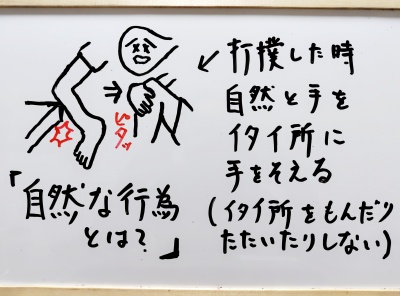 打撲した時
自然と手を
イタイ所に
手をそえる
(イタイ所をもんだり
たたいたりしない)
ピタッ
「自然な行為
とは?」